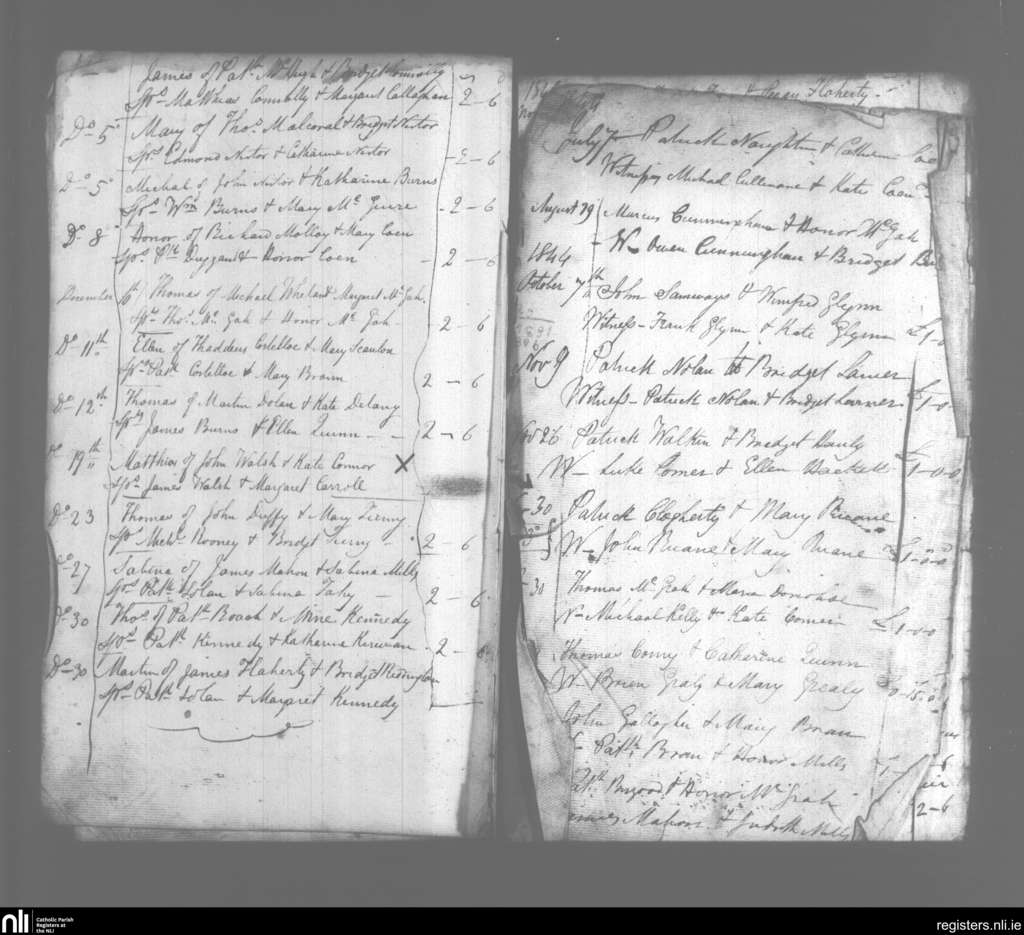 James of Patk. McHugh & Bridget Connolly
Spos. Mathias Connolly & Margaret Callaghan 2-6
Do. 5 Mary of Thos. & Bridget Nestor
Spos. Edmond Nestor & Catharine Nestor 2-6
Do. 5 Michal of John Nestor & Katharine Burns
Spos. Wm Burns & Mary Mc 2-6
Do. 8 Honor of Richard Molloy & Mary Coen
Spos. Duggan & Honor Coen - 2-6
December 6th Thomas of Michael Whelan & Margaret McGah
Spos. Thos. McGah & Honor McGah - 2-6
Do. 11th Ellen of Thaddeus Costelloe & Mary Scanlon
Spos. Patk. Costelloe & Mary Brown 2-6
Do. 12th Thomas of Martin Dolan & Kate Delany
Spos. James Burns & Ellen Quinn - - 2-6
Do. 19th Matthias of John Walsh & Kate Connor X
Spos. James Walsh & Margaret Carroll
Do. 23 Thomas of John Duffy & Mary Tierny
Spos. Michl. Rooney & Bridget Tierny - 2-6
Do. 27 Sabina of James Mahon & Sabina Mills
Spos. Patk. Dolan & Sabina Fahy - 2-6
Do. 30 Thos. of Patk. Roach & Anne Kennedy
Spos. Patk. Kennedy & Katharine Kirwan 2-6
Do. 30 Martin of James Flaherty & Bridget Redington
Spos. Patk. Dolan & Margaret Kennedy
Flaherty
July 7 Patrick Naughtin & Catherine
Witnesses Michael Cullinane & Kate Coen
August 29 Marcus Cunningham & Honor McGah
W- Owen Cunningham & Bridget
1844
October 7th John Samways & Winifred Glynn
Witness- Frank Glynn & Kate Glynn £1-0
Nov 9 Patrick Nolan to Bridget Larner
Witness- Patrick Nolan & Bridget Larner £1-0
26 Patrick Walkin & Bridget Hauly
W- Luke Comer & Ellen Hackett £1-0-0
30 Patrick Clogherty & Mary Ruane
W- John Ruane & Mary Ruane £1-0-0
30 Thomas McGah & Maria Donohoe
W- Michael Kelly & Kate Comer £1-0-0
Thomas Conry & Catharine Quinn
W Brien Grealy & Mary Grealy 0-15-0
John Gallagher & Mary Bran
Patk. Bran & Honor Mills
Patk. & Honor McGrah
James Mahon & Judith Mills 2-6
nli Catholic Parish
Registers at
the NLI
registers.nli.ie